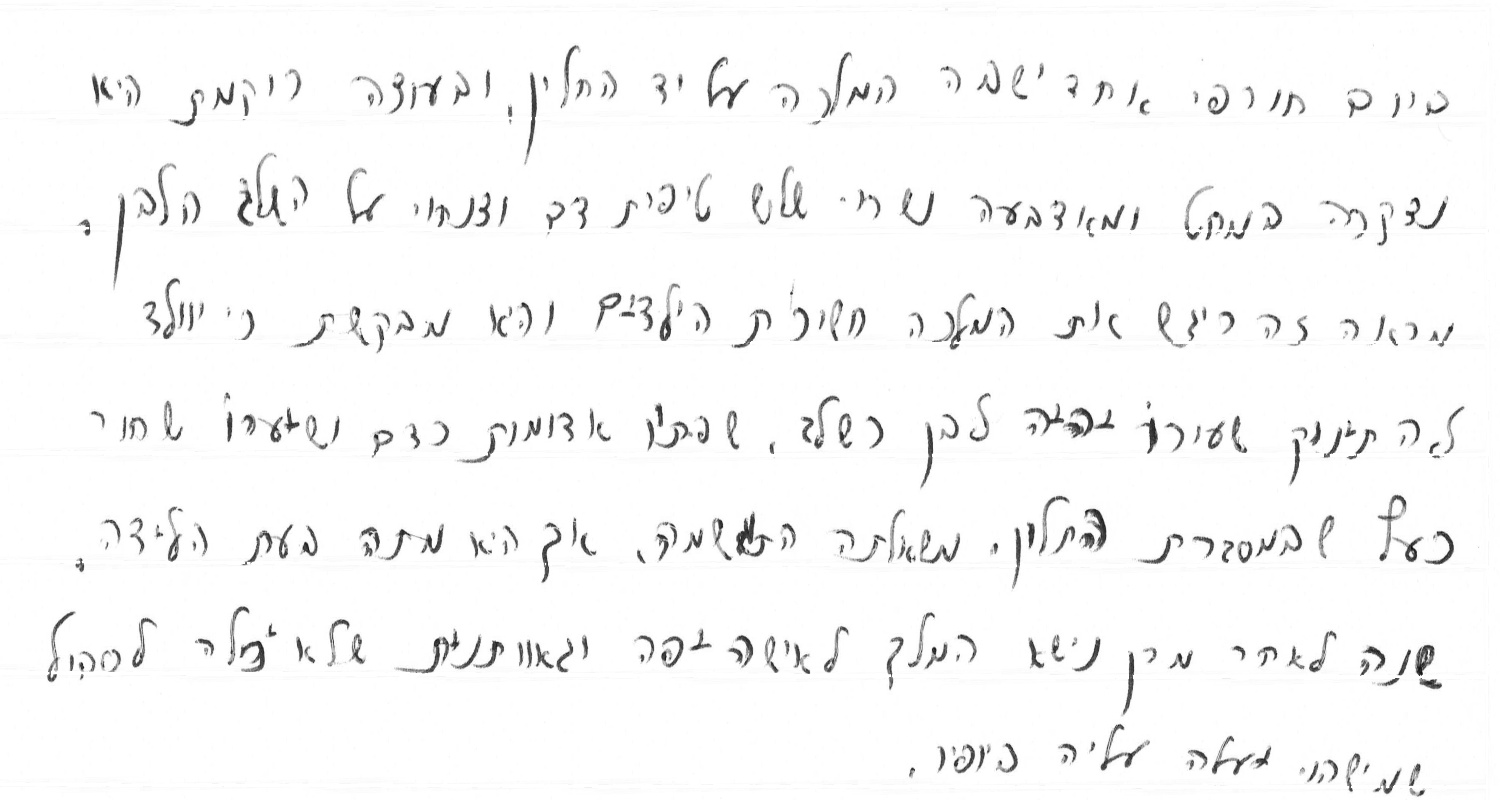 ביום חורפי אחד ישבה המלכה על יד החלון, ובעודה רוקמת היא
נדקרה במחט ומאצבעה נשרו שלוש טיפות דם וצנחו על השלג הלבן.
מראה זה ריגש את המלכה חשוכת הילדים והיא מבקשת כי יוולד
לה תינוק שעורו יהיה לבן כשלג, שפתיו אדומות כדם ושיערו שחור
כעץ שבמסגרת החלון. משאלתה התגשמה, אך היא מתה בעת הלידה.
שנה לאחר מכן נישא המלך לאישה יפה וגאוותנית שלא יכלה לסבול
שמישהו יעלה עליה ביופיו.